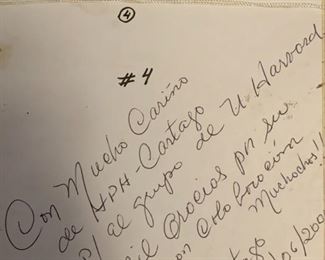 4
# 4
Con Mucho Cariño
de HPH-Cartago
P/ al grupo de U Harvard
Mil Gracias por su
Colaboración
Muchachos!!